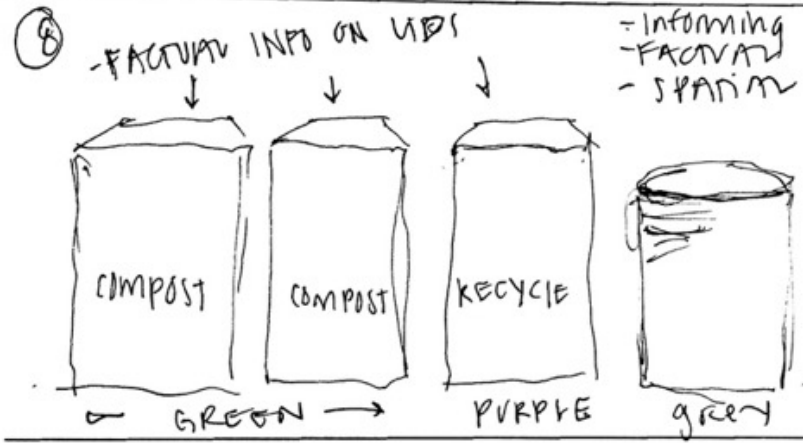 8
-FACTUAL INFO ON LIDS
- Informing
- FACTUAL
- SPATIAL
COMPOST
COMPOST
RECYCLE
GREEN
PURPLE
grey